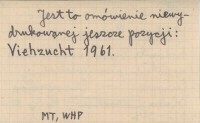 Jest to omówienie niewy-
drukowanej jeszcze pozycji:
Viehzucht 1961.
MT, WHP